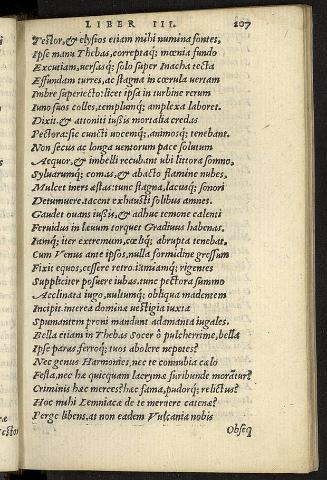 LIBER III. 207
Testor, & elysios etiam mihi numina fontes,
Ipse manu Thebas, correptaq; mœnia fundo
Excutiam, uersasq; solo super Inacha tecta
Effundam turres, ac stagna in cœrula uertam
Imbre superiecto: licet ipsa in turbine rerum
Iuno suos colles, templumq; amplexa laboret.
Dixit. & attoniti iussis mortalia credas
Pectora: sic cuncti uocemq;, animosq; tenebant.
Non secus ac longa uentorum pace solutum
Aequor, & imbelli recubant ubi littora somno,
Syluarumq; comas, & abacto flamine nubes,
Mulcet iners æstas: tunc stagna, lacusq; sonori
Detumuere. tacent exhausti solibus amnes.
Gaudet ouans iussis, & adhuc temone calenti
Feruidus in læuum torquet Gradiuus habenas.
Iamq; iter extremum, cœliq; abrupta tenebat.
Cum Venus ante ipsos, nulla formidine gressum
Fixit equos, cessere retro. iamiamq; rigentes
Suppliciter posuere iubas. tunc pectora summo
Acclinata iugo, uultumq; obliqua madentem
Incipit. interea dominæ uestigia iuxta
Spumantem proni mandunt adamanta iugales.
Bella etiam in Thebas Socer ô pulcherrime, bella
Ipse paras. ferroq; tuos abolere nepotes?
Nec genus Harmonies, nec te connubia cælo
Festa, nec hæ quicquam lacrymæ furibunde morātur?
Criminis hæc merces? hæc fama, pudorq; relictus?
Hoc mihi Lemniacæ de te meruere catenæ?
Perge libens. at non eadem Vulcania nobis
Obseq